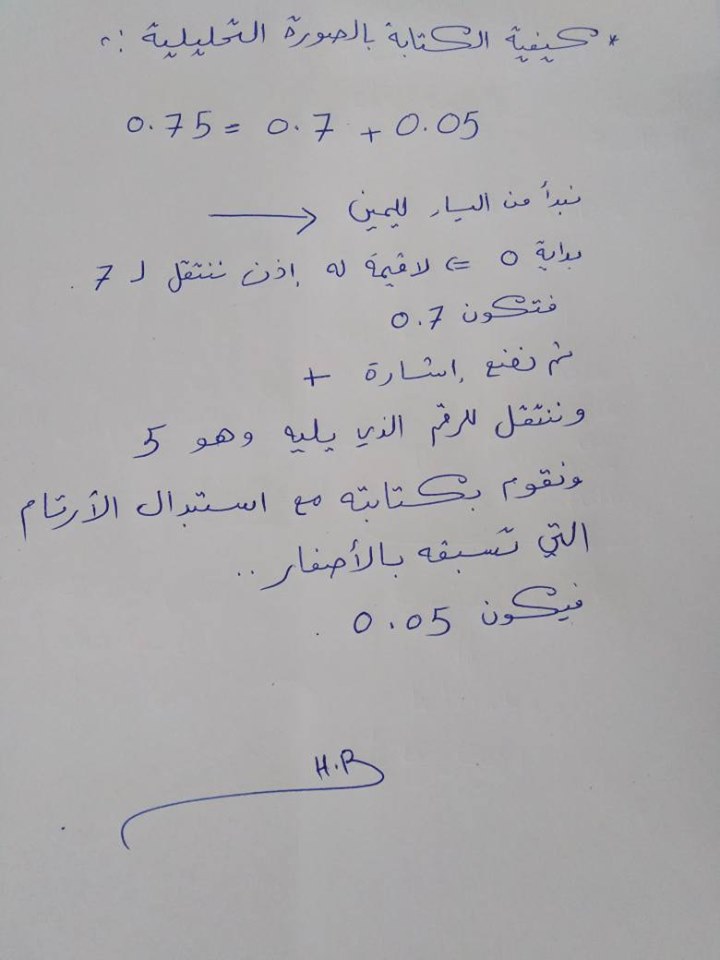 * كيفية الكتابة بالصورة التحليلية :
0.75 = 0.7 + 0.05
نبدأ من اليسار لليمين →
بداية 0 => لا قيمة له إذن ننتقل لـ 7 .
فتكون 0.7
ثم نضع إشارة +
وننتقل للرقم الذي يليه وهو 5
ونقوم بكتابته مع استبدال الأرقام
التي تسبقه بالأصفار ..
فيكون 0.05 .
H.B